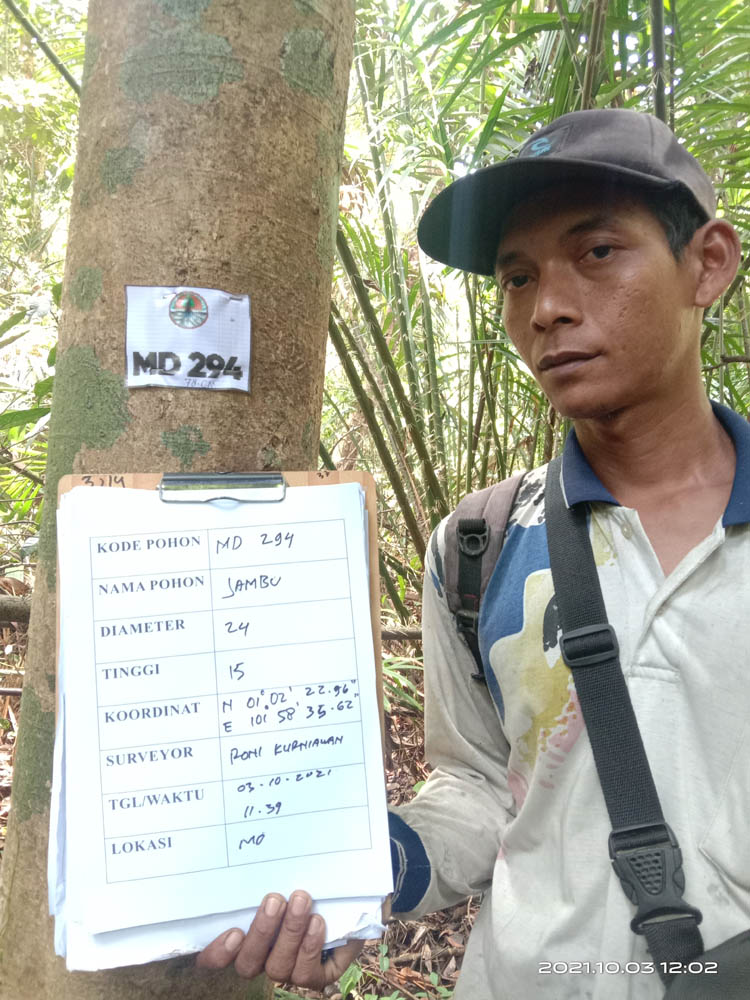 MD 294
78 cm
3,14
KODE POHON MD 294
NAMA POHON JAMBU
DIAMETER 24
TINGGI 15
KOORDINAT N 01° 02' 22.96"
E 101° 58' 35.62"
SURVEYOR RONI KURNIAWAN
TGL/WAKTU 03-10-2021
11.39
LOKASI MD
2021.10.03 12:02